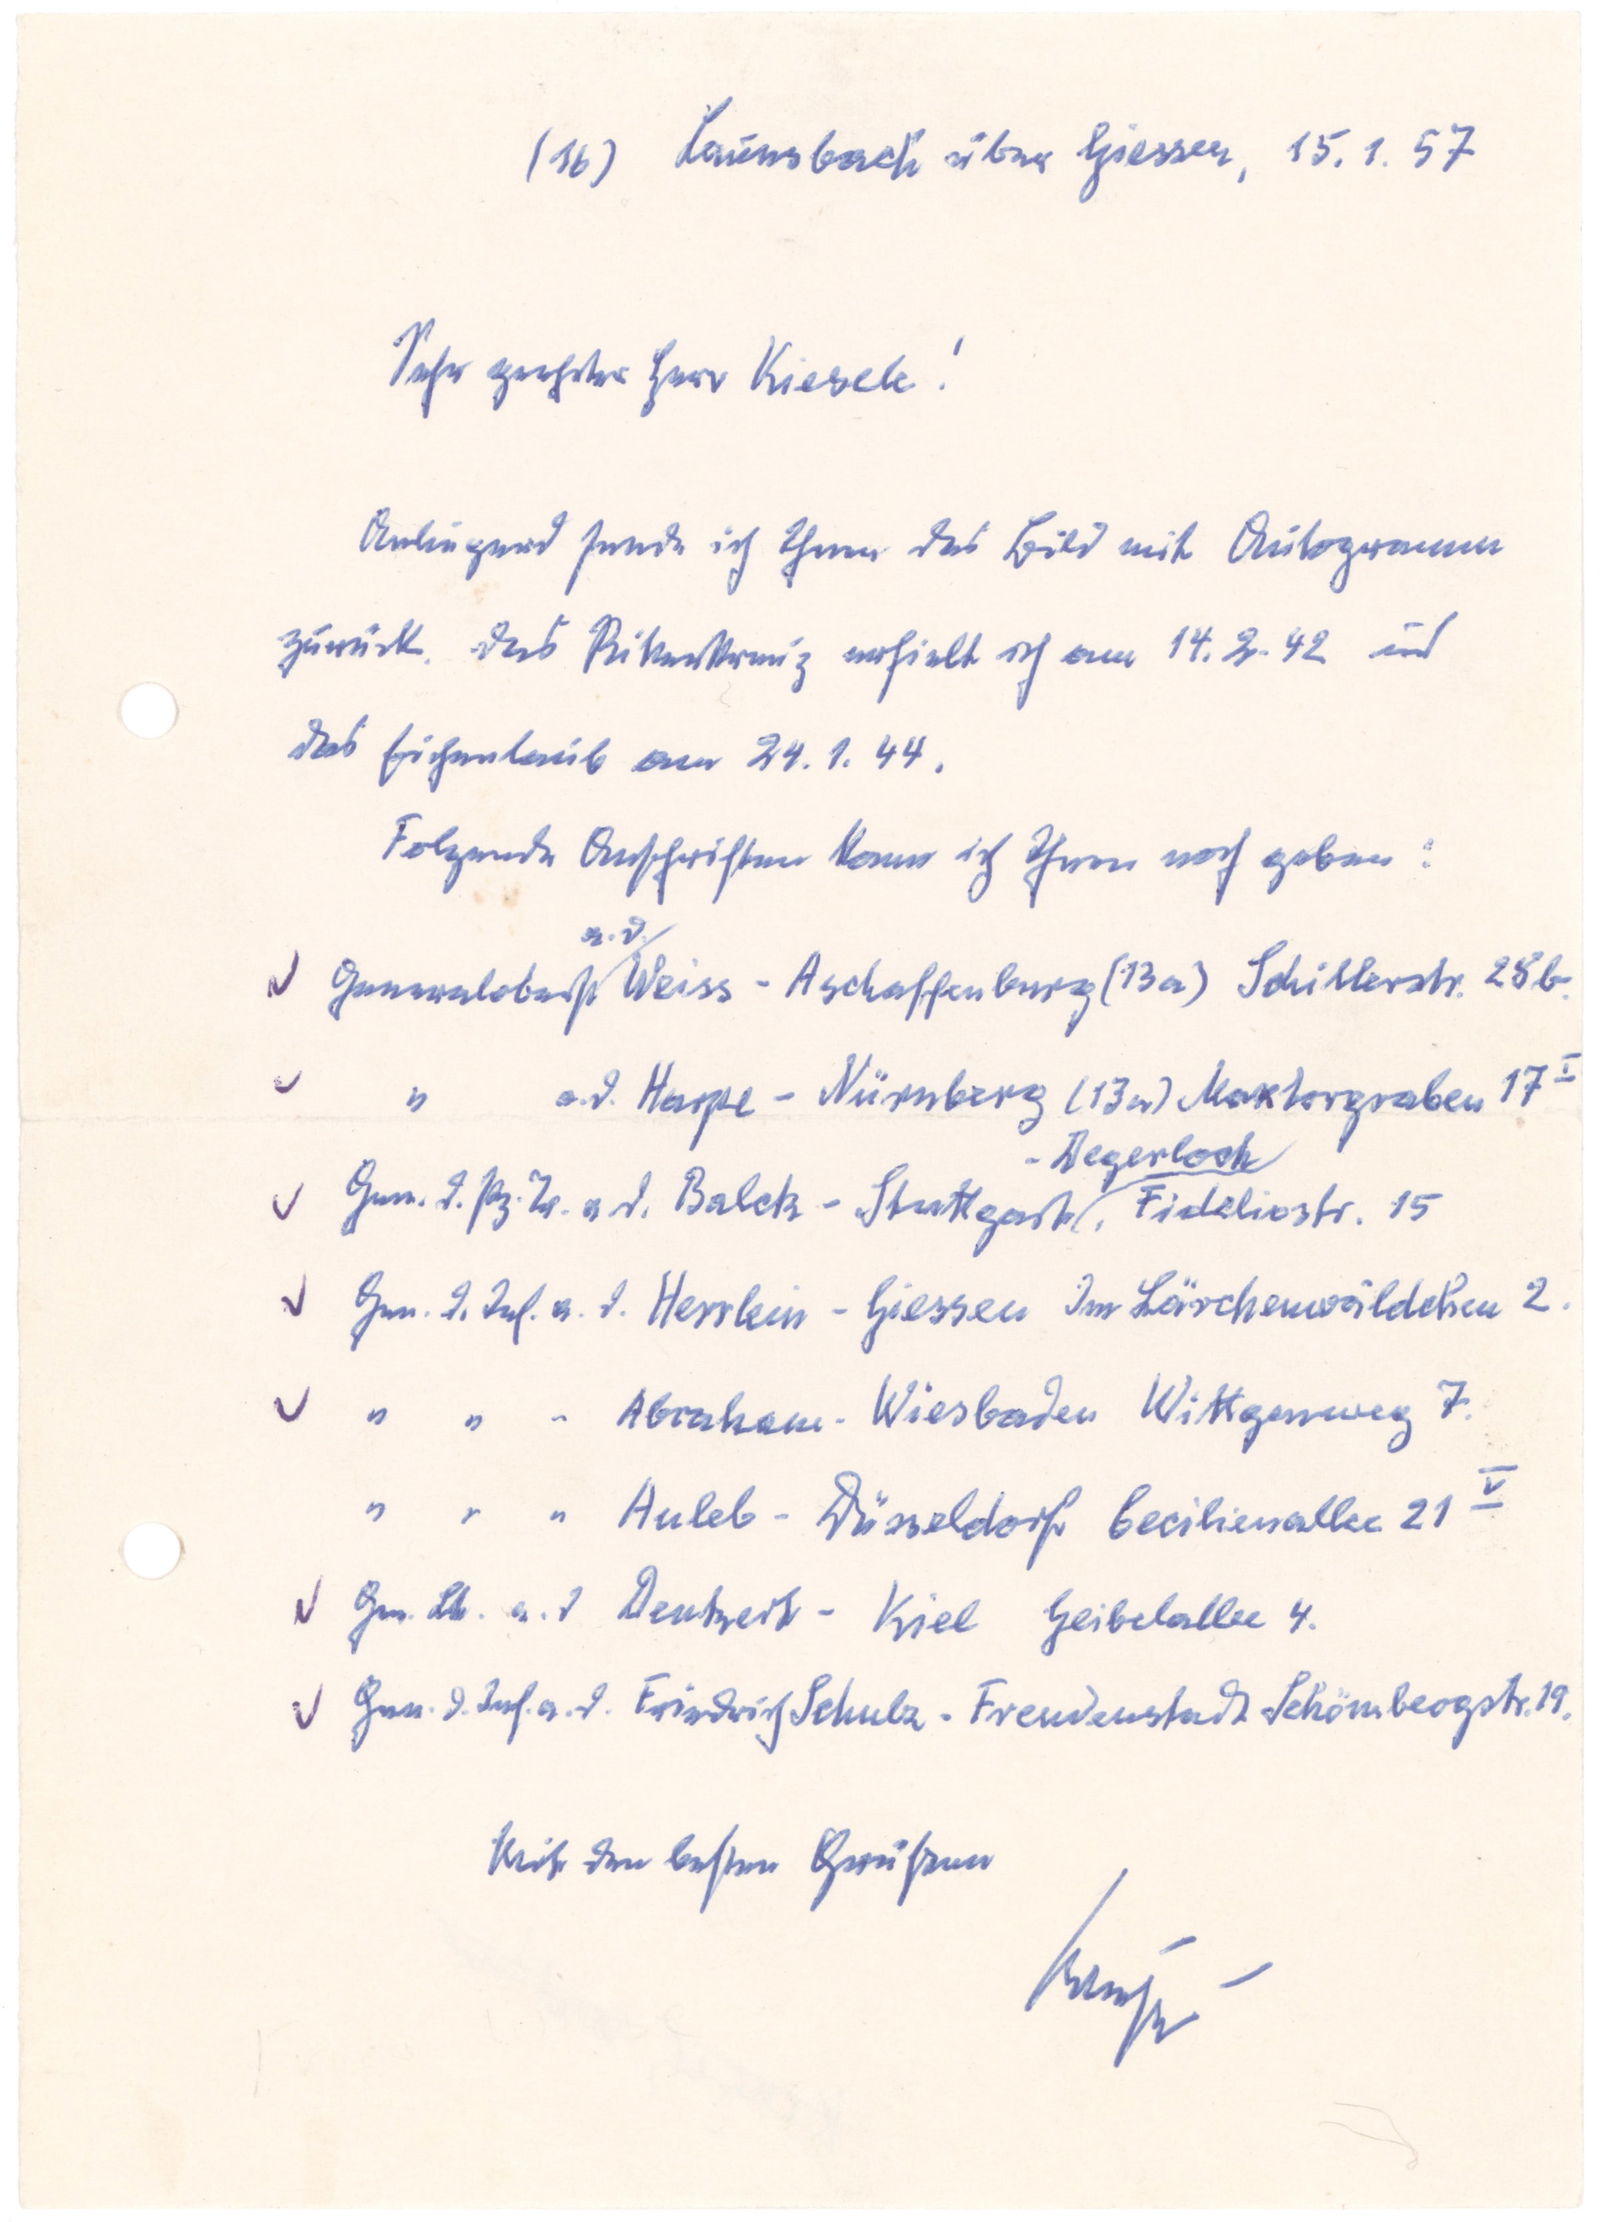 (16) Launsbach über Giessen, 15. 1. 57
Sehr geehrter Herr Kiesele!
Anliegend sende ich Ihnen das Bild mit Autogramm
zurück. Das Ritterkreuz erhielt ich am 14. 2. 42 und
das Eichenlaub am 24. 1. 44.
Folgende Anschriften kann ich Ihnen noch geben:
a. D.
Generaloberst Weiss - Aschaffenburg (13a) Schillerstr. 28 b.
" a. D. Harpe - Nürnberg (13a) Maxtorgraben 17 I
- Degerloch
Gen. d. Pz. Tr. a. D. Balck - Stuttgart, Fideliostr. 15
Gen. d. Inf. a. D. Herrlein - Giessen Im Lärchenwäldchen 2.
" " " Abraham - Wiesbaden Wittgensweg 7.
" " " Auleb - Düsseldorf Cecilienallee 21 V
Gen. Lt. a. D - Kiel Geibelallee 4.
Gen. d. Inf. a. D. Friedrich Schulz - Freudenstadt Schömbergstr. 19.
Mit den besten Grüssen